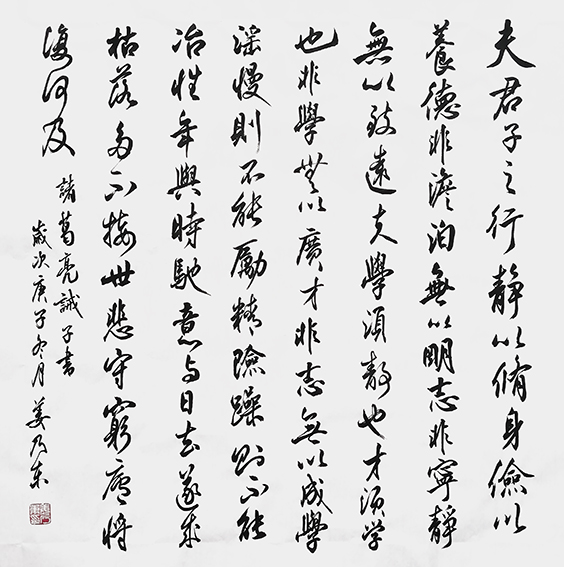 夫君子之行靜以脩身儉以
養德非澹泊無以明志非寧靜
無以致遠夫學須靜也才須学
也非學無以廣才非志無以成學
淫慢則不能勵精險躁則不能
冶性年與時馳意与日去遂成
枯落多不接世悲守窮廬將
復何及
諸葛亮誡子書
歲次庚子冬月 姜乃东